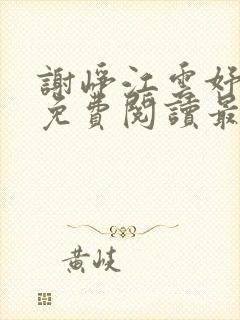 謝崢江雲好
免費閱讀最
黄岐